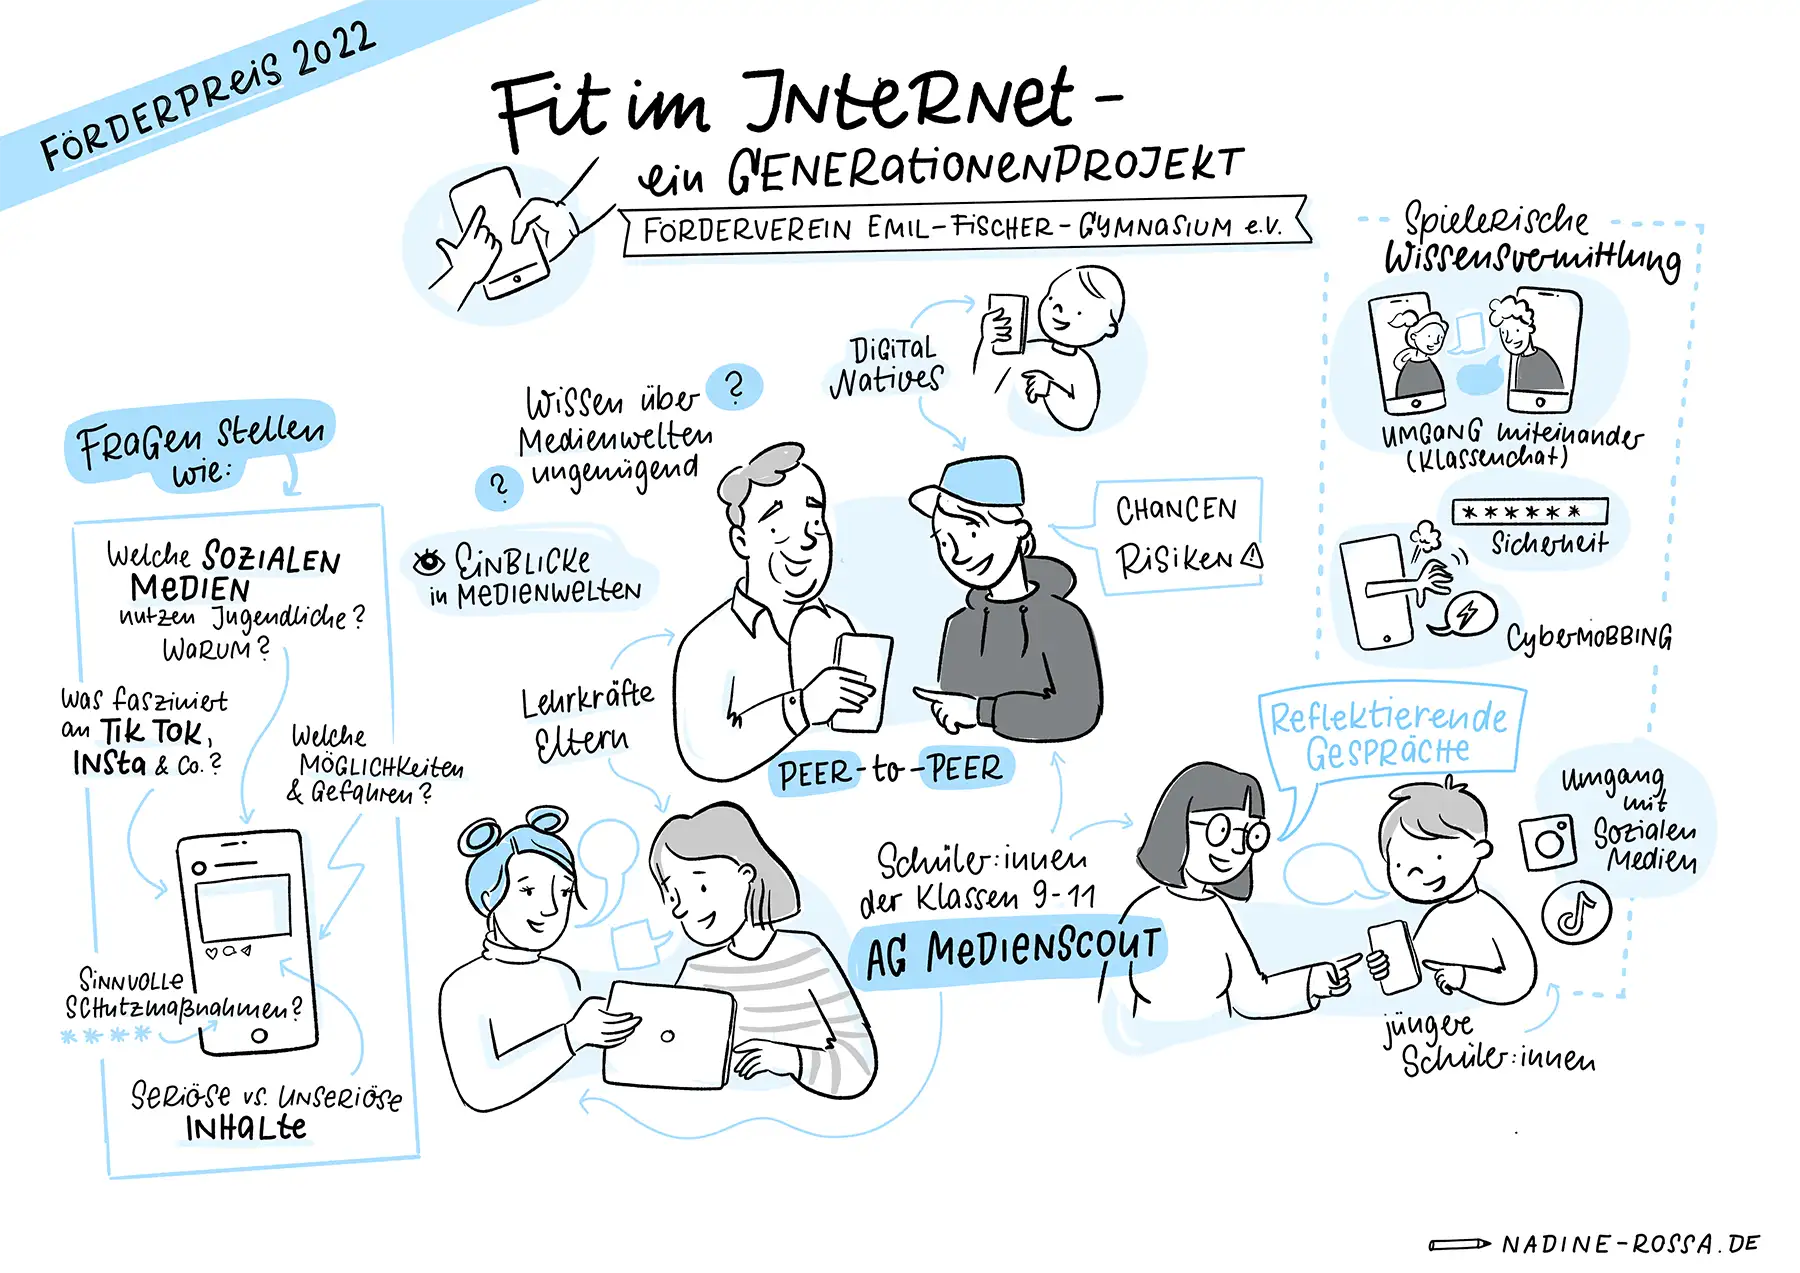 FÖRDERPREIS 2022
Fit im INTERNET -
ein GENERATIONENPROJEKT
FÖRDERVEREIN EMIL-FISCHER-GYMNASIUM e.V.
DIGITAL
NATIVES
Wissen über
Medienwelten
ungenügend
?
?
EINBLICKE
in MEDIENWELTEN
FRAGEN stellen
wie:
Welche SOZIALEN
MEDIEN
nutzen Jugendliche?
WARUM?
Was fasziniert
an TIK TOK,
INSTA & Co.?
Welche
MÖGLICHKEITEN
& GEFAHREN?
SINNVOLLE
SCHUTZMAßNAHMEN?
****
SERIÖSE vs. UNSERIÖSE
INHALTE
Lehrkräfte
Eltern
CHANCEN
RISIKEN
PEER-to-PEER
Schüler:innen
der Klassen 9-11
AG MEDIENSCOUT
Spielerische
Wissensvermittlung
UMGANG miteinander
(Klassenchat)
******
Sicherheit
CYBERMOBBING
Reflektierende
GESPRÄCHE
Umgang
mit
Sozialen
Medien
jüngere
Schüler:innen
NADINE-ROSSA.DE